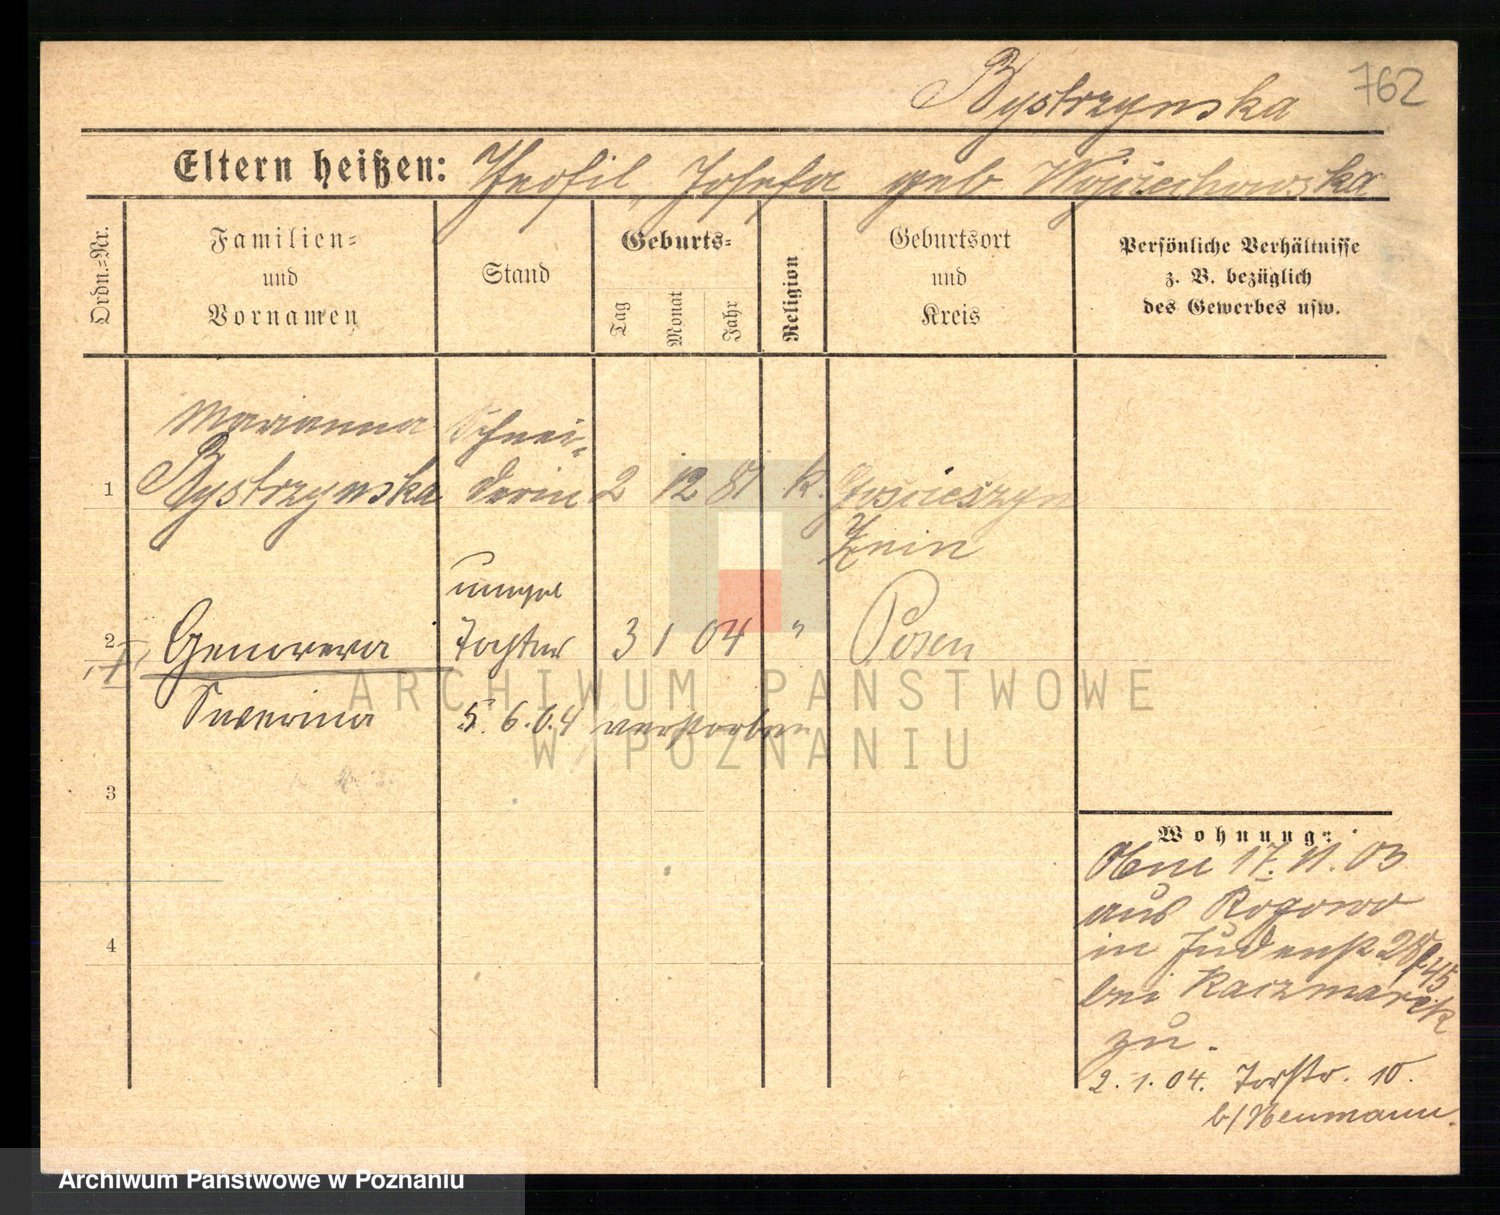 762
Bystrzynska
Eltern heißen: Theofil, Josefa geb Wojciechowska
Ordn.-Nr.
Familien- und Vornamen
Stand
Geburts-
Tag
Monat
Jahr
Religion
Geburtsort und Kreis
Persönliche Verhältnisse z. B. bezüglich des Gewerbes usw.
Marianna Schnei-
1 Bystrzynska derin 2 12 81 k.
Znin
unehel
2 Genovefa Tochter 3 1 04 " Posen
Severina 5.6.04 verstorben
3
4
Wohnung:
17.11.03
aus Rogowo
in Judenstr 28
bei Kaczmarek
zu.
2.1.04. Torstr. 10.
b/Neumann.
ARCHIWUM PAŃSTWOWE
W POZNANIU
Archiwum Państwowe w Poznaniu